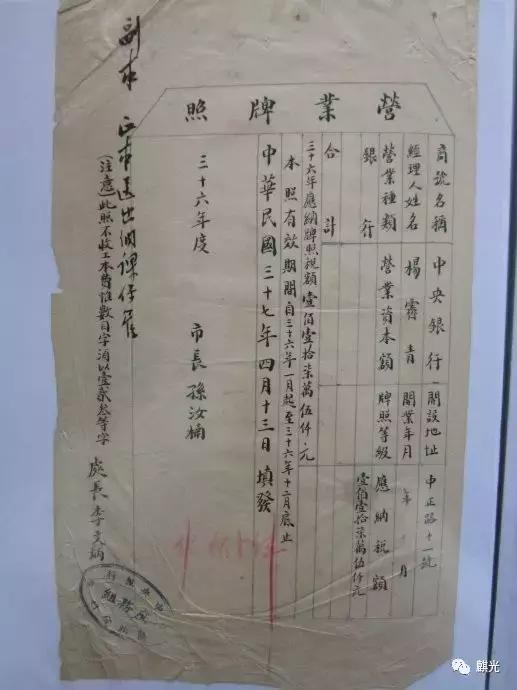 營業牌照
商號名稱 中央銀行 開設地址 中正路十一號
經理人姓名 楊霽青 開業年月 年 月
營業種類 營業資本額 牌照等級 應納稅額
銀行 壹佰壹拾柒萬伍仟元
合計
三十六年應納牌照稅額壹佰壹拾柒萬伍仟元
本照有效期間自三十六年一月起至三十六年十二月底止
中華民國三十七年四月十三日填發
三十六年度 市長孫汝楠
(注意)此照不收工本費惟數目字須以壹貳叁等字
處長李文炳
副本 正本送出納課存查
麒光